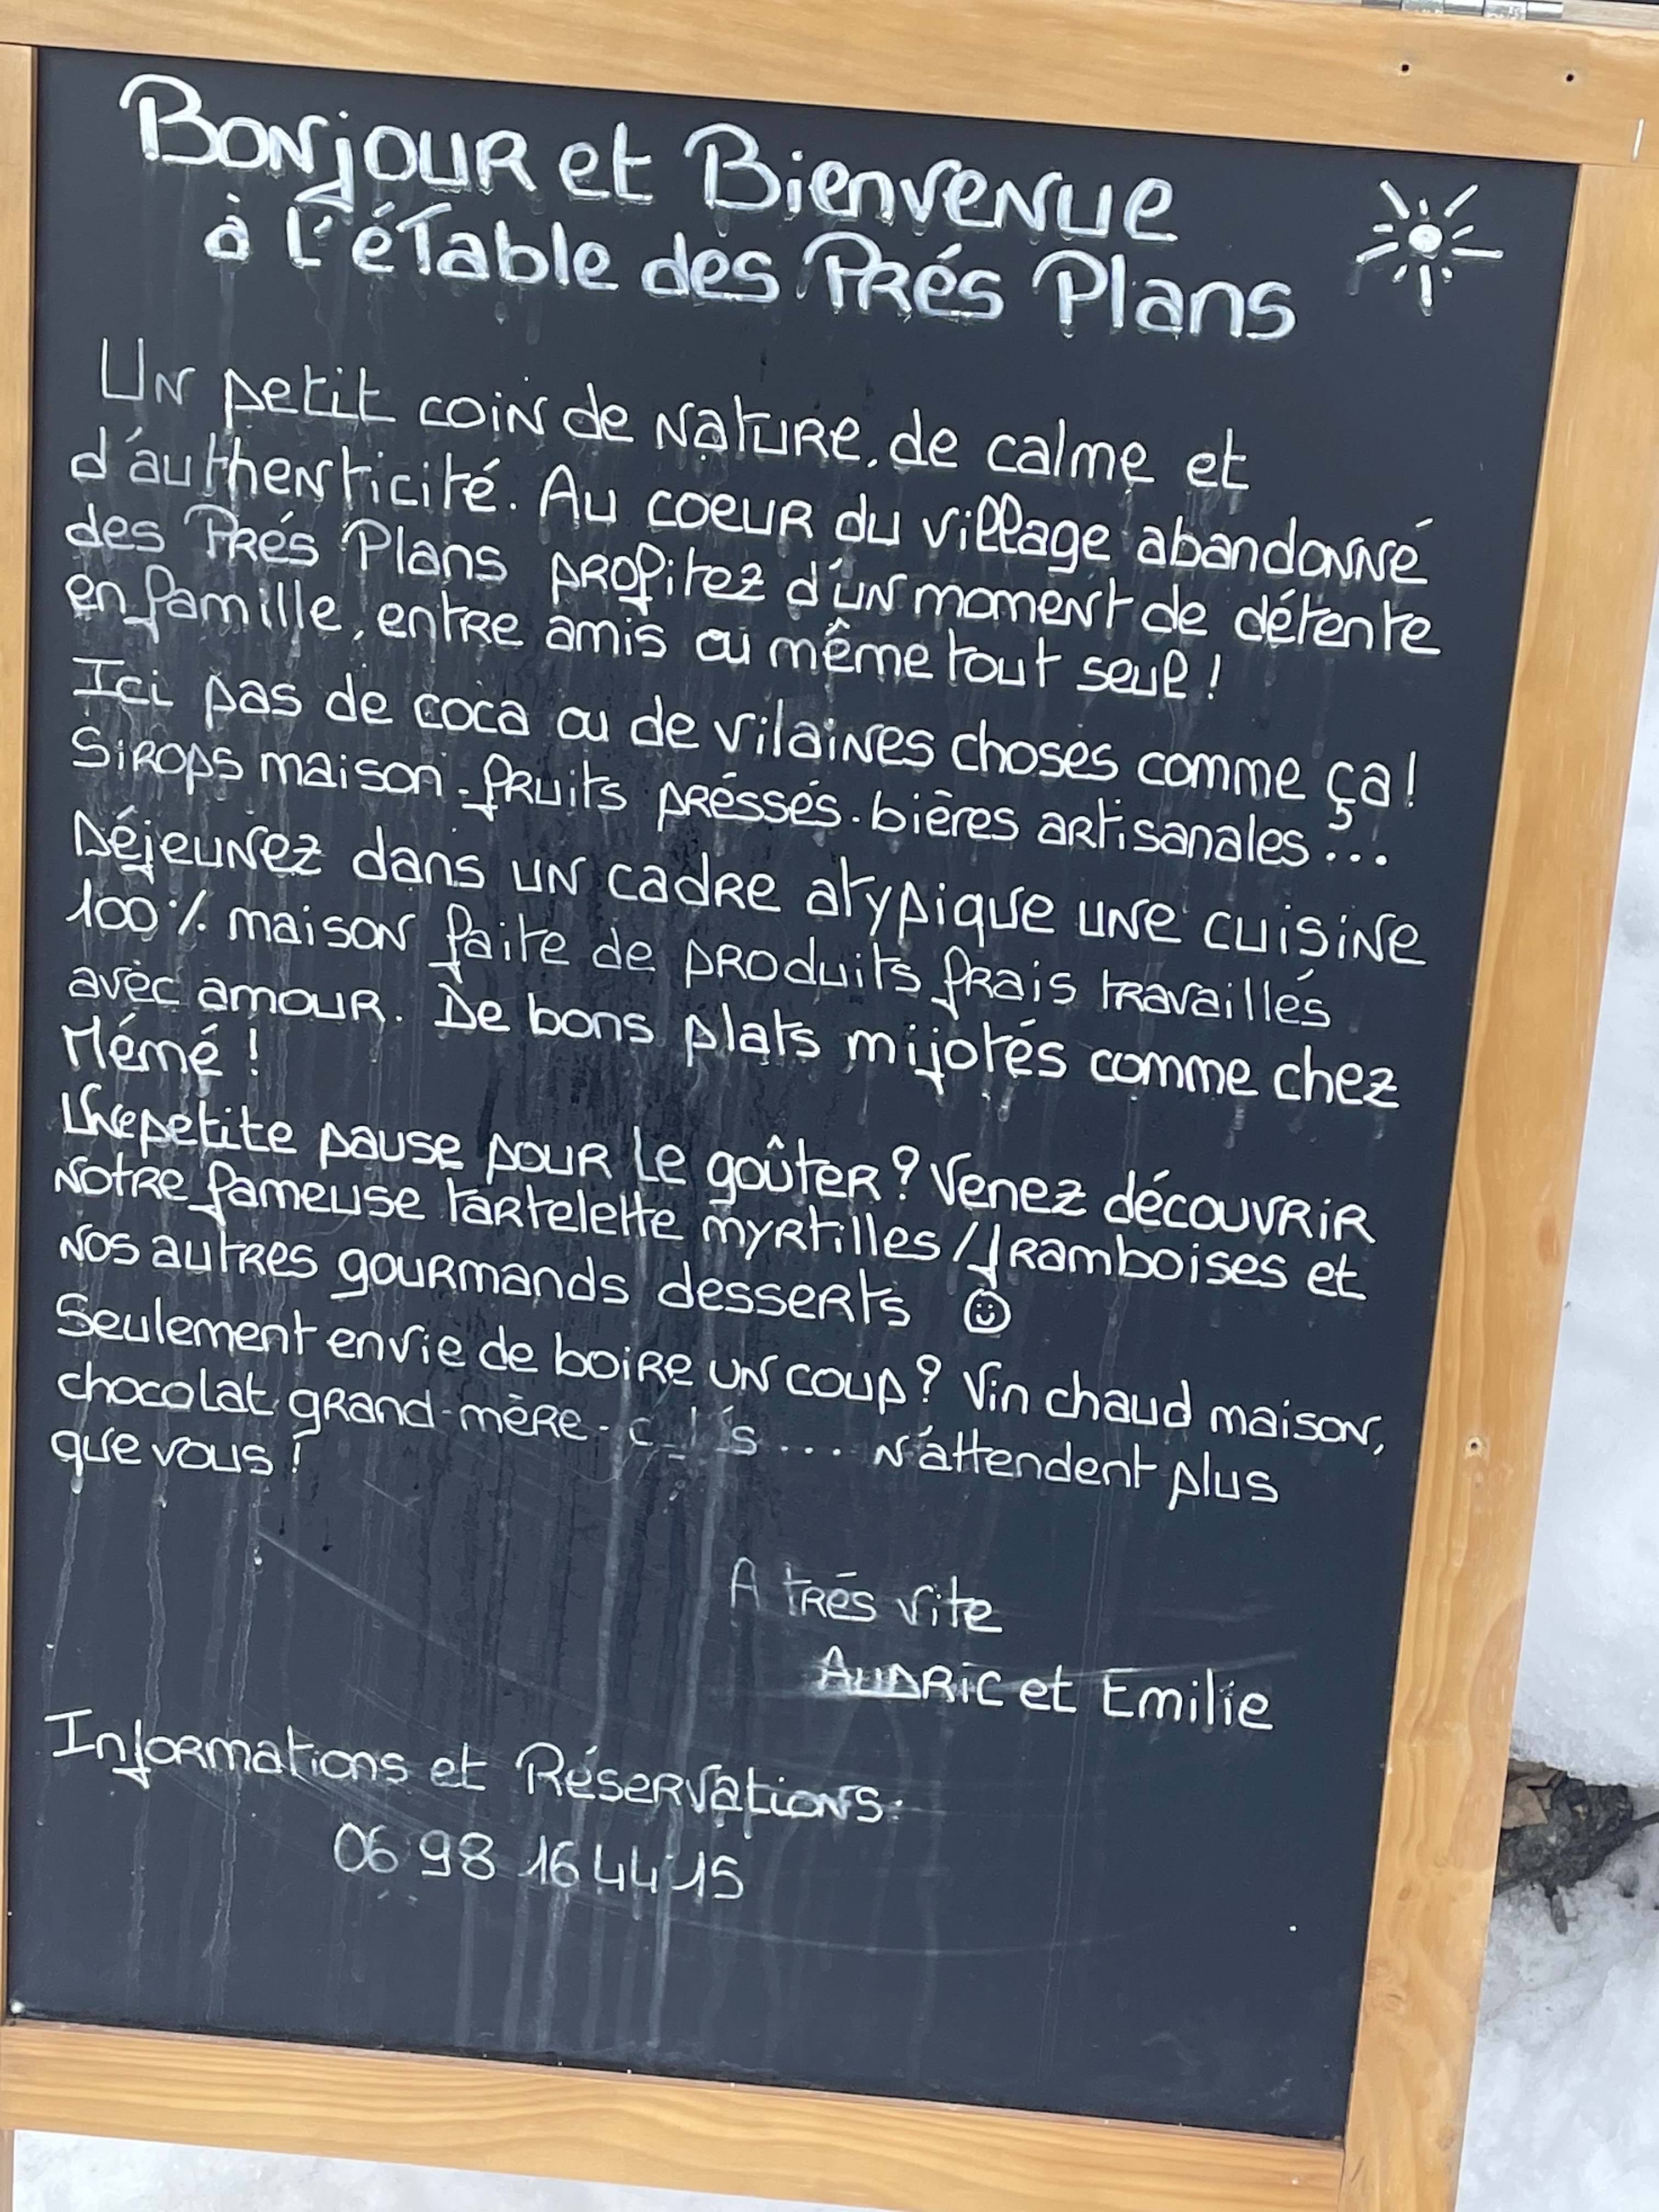 Bonjour et Bienvenue
à l'étable des Prés Plans
Un petit coin de nature, de calme et
d'authenticité. Au coeur du village abandonné
des Prés Plans profitez d'un moment de détente
en famille, entre amis ou même tout seul !
Ici pas de coca ou de vilaines choses comme ça !
Sirops maison - fruits préssés - bières artisanales ...
Déjeunez dans un cadre atypique une cuisine
100% maison faite de produits frais travaillés
avec amour. De bons plats mijotés comme chez
Mémé !
Une petite pause pour le goûter ? Venez découvrir
notre fameuse tartelette myrtilles / framboises et
nos autres gourmands desserts ☺
Seulement envie de boire un coup ? Vin chaud maison,
chocolat grand-mère - ... n'attendent plus
que vous !
A trés vite
Audric et Emilie
Informations et Réservations:
06 98 16 44 15